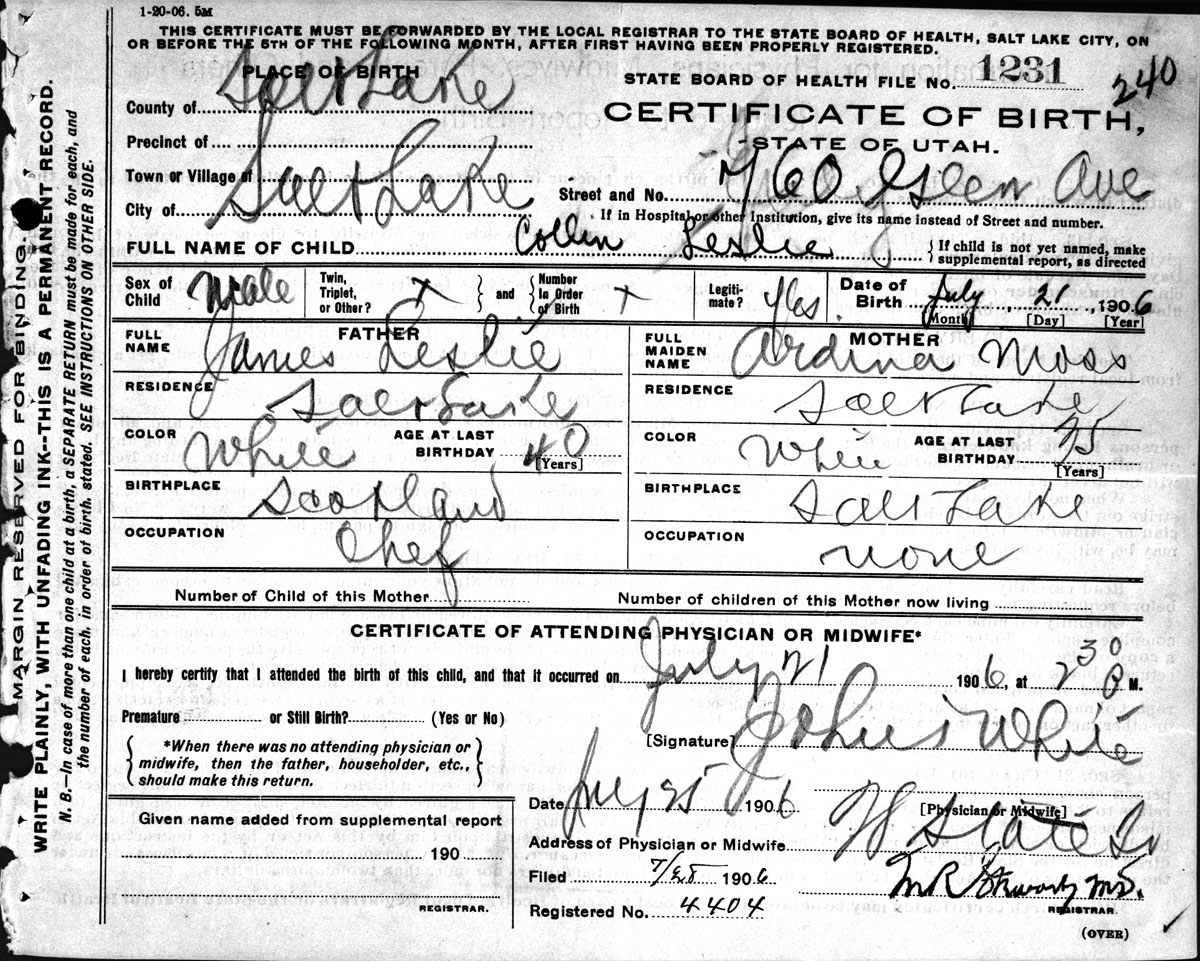 1-20-06. 5M
THIS CERTIFICATE MUST BE FORWARDED BY THE LOCAL REGISTRAR TO THE STATE BOARD OF HEALTH, SALT LAKE CITY, ON
OR BEFORE THE 5TH OF THE FOLLOWING MONTH, AFTER FIRST HAVING BEEN PROPERLY REGISTERED.
PLACE OF BIRTH
STATE BOARD OF HEALTH FILE No. 1231
240
County of Salt Lake
CERTIFICATE OF BIRTH,
STATE OF UTAH.
Precinct of
Town or Village of
Street and No. 760 Glen Ave
City of Salt Lake
If in Hospital or other Institution, give its name instead of Street and number.
FULL NAME OF CHILD Collin Leslie
{ If child is not yet named, make
supplemental report, as directed
Sex of Child Male
Twin, Triplet, or Other? x } and { Number In Order of Birth x
Legitimate? Yes
Date of Birth July 21, 1906
[Month] [Day] [Year]
FATHER
FULL NAME James Leslie
RESIDENCE Salt Lake
COLOR White
AGE AT LAST BIRTHDAY 40
[Years]
BIRTHPLACE Scotland
OCCUPATION Chef
MOTHER
FULL MAIDEN NAME Ardina Moss
RESIDENCE Salt Lake
COLOR White
AGE AT LAST BIRTHDAY 35
[Years]
BIRTHPLACE Salt Lake
OCCUPATION none
Number of Child of this Mother
Number of children of this Mother now living
CERTIFICATE OF ATTENDING PHYSICIAN OR MIDWIFE*
I hereby certify that I attended the birth of this child, and that it occurred on July 21 1906, at 2 30 P M.
Premature or Still Birth? (Yes or No)
{ *When there was no attending physician or
midwife, then the father, householder, etc.,
should make this return. }
[Signature] White
[Physician or Midwife]
Date July 25 1906
Address of Physician or Midwife State St
Given name added from supplemental report
190
REGISTRAR.
Filed 1906
REGISTRAR.
Registered No. 4404
(OVER)
MARGIN RESERVED FOR BINDING.
WRITE PLAINLY, WITH UNFADING INK--THIS IS A PERMANENT RECORD.
N. B.—In case of more than one child at a birth, a SEPARATE RETURN must be made for each, and
the number of each, in order of birth, stated. SEE INSTRUCTIONS ON OTHER SIDE.